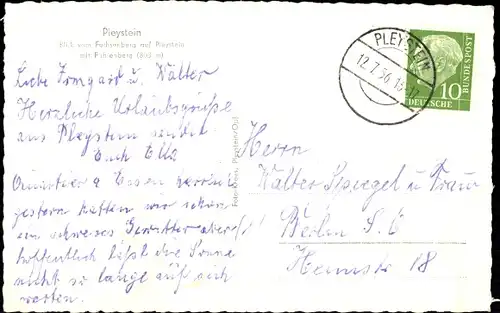 Pleystein
Blick vom Fahrenberg auf Pleystein
mit Fahrenberg (801 m)
Liebe Irmgard u. Walter
Herzliche Urlaubsgrüße
aus Pleystein sendet
Euch Ella
Quartier u. Essen
gestern hatten wir schon
ein schweres Gewitter aber
hoffentlich läßt die Sonne
nicht so lange auf sich
warten.
PLEYSTEIN
12.7.56
10
DEUTSCHE
BUNDESPOST
Herrn
Walter Spiegel u. Frau
Berlin S.
18